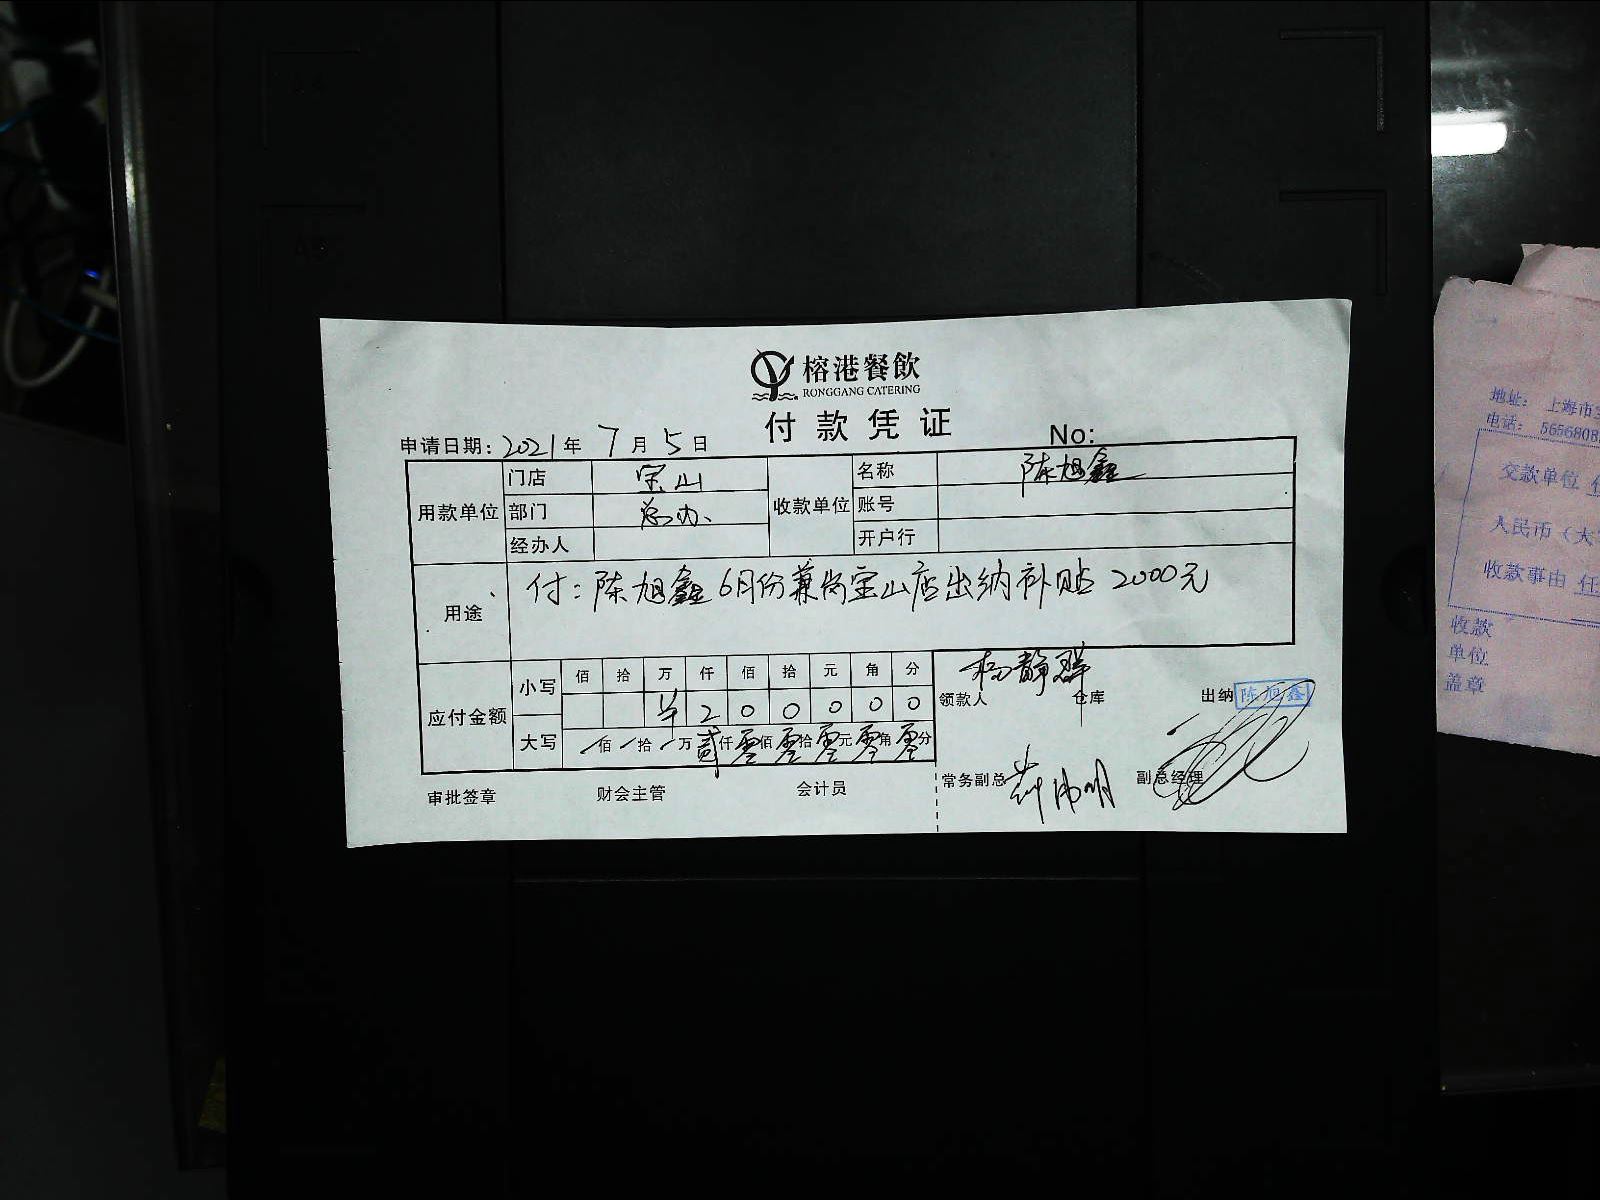 榕港餐飲
RONGGANG CATERING
付款凭证
申请日期: 2021年7月5日 No:
用款单位 门店 宝山 收款单位 名称 陈旭鑫
部门 总办 账号
经办人 开户行
用途 付:陈旭鑫6月份兼岗宝山店出纳补贴 2000元
应付金额 小写 佰 拾 万 仟 佰 拾 元 角 分
¥ 2 0 0 0 0 0
大写 一佰一拾一万贰仟零佰零拾零元零角零分
杨静群
领款人 仓库 出纳 陈旭鑫
审批签章 财会主管 会计员 常务副总 副总经理
地址: 上海市
电话: 5656808
交款单位
人民币(大
收款事由
收款
单位
盖章